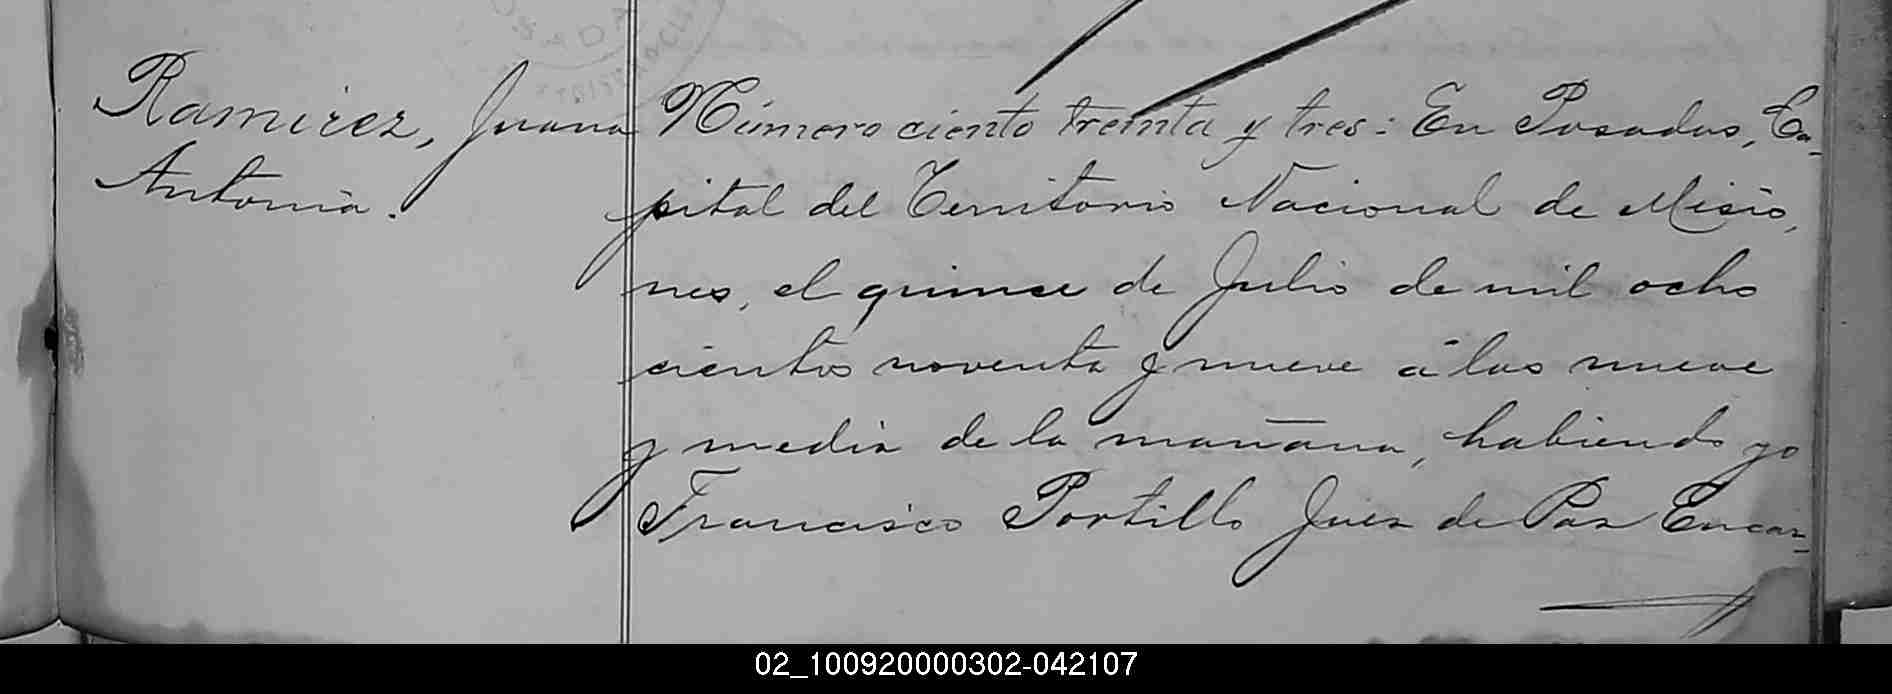 Ramirez, Juana
Antonia.
Número ciento treinta y tres: En Posadas, Ca-
pital del Territorio Nacional de Misio,
nes, el quince de Julio de mil ocho
cientos noventa y nueve á las nueve
y media de la mañana, habiendo yo
Francisco Portillo Juez de Paz Encar-
02_100920000302-042107